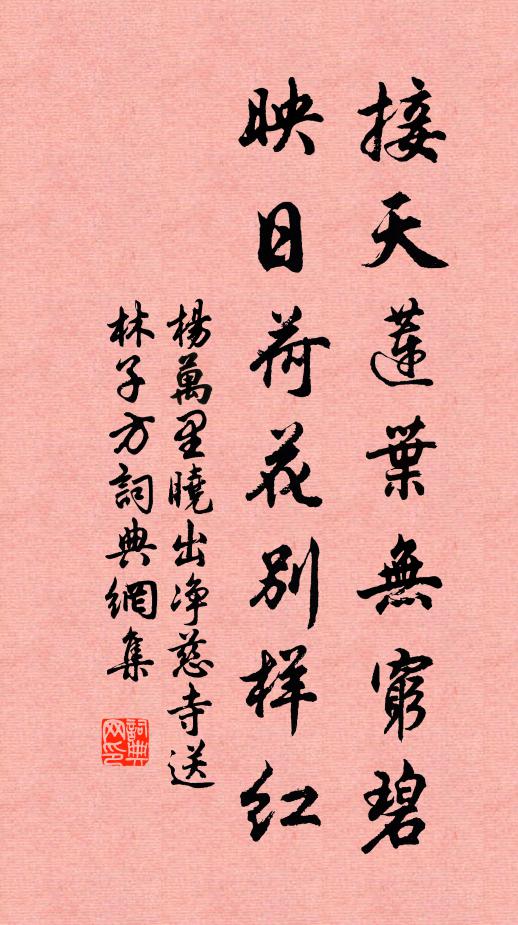 接天蓮葉無窮碧
映日荷花別样红
楊萬里曉出净慈寺送
林子方詞典網集
詞典
网印